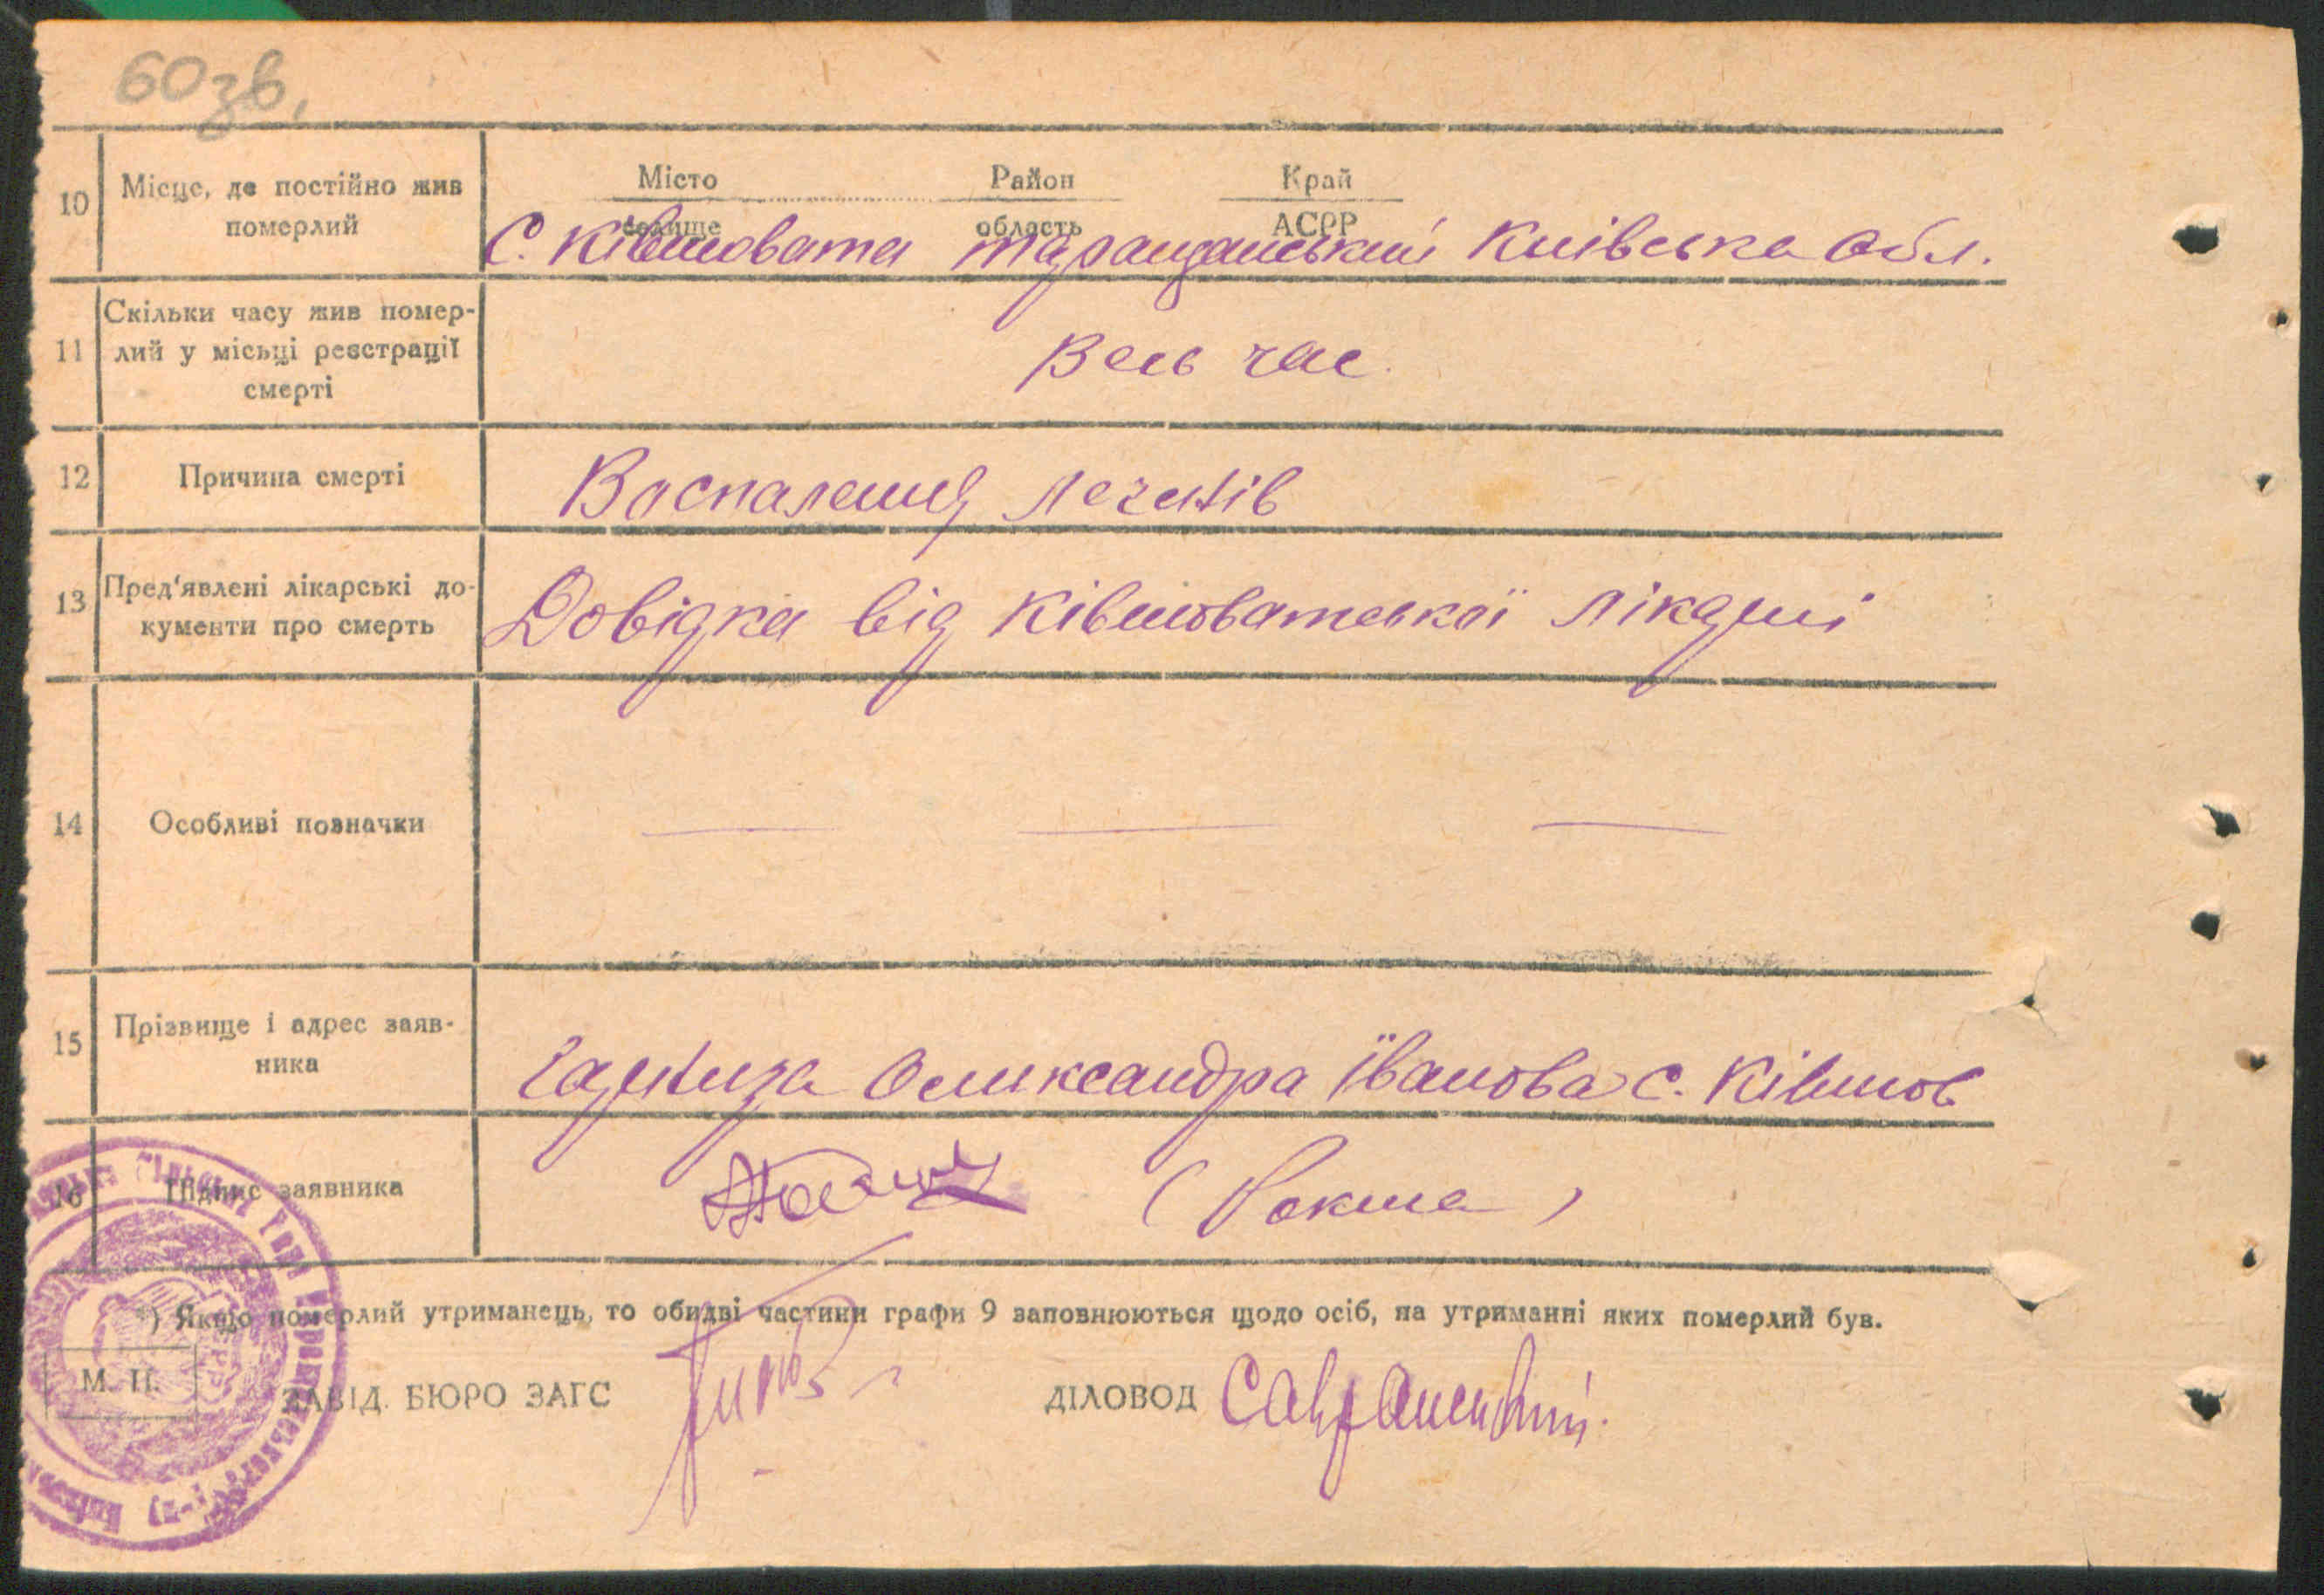 60 зв.
10 Місце, де постійно жив
померлий
Місто Район Край
селище область АСРР
С. Ківшовата Таращанський Київська обл.
11 Скільки часу жив помер-
лий у місьці реєстрації
смерті
Весь час.
12 Причина смерті
Воспалення легенів
13 Пред'явлені лікарські до-
кументи про смерть
Довідка від Ківшоватської лікарні
14 Особливі позначки
15 Прізвище і адрес заяв-
ника
Олександра Іванова С. Ківшов
16 Підпис заявника
*) Якщо померлий утриманець, то обидві частини графи 9 заповнюються щодо осіб, на утриманні яких померлий був.
М. П.
ЗАВІД. БЮРО ЗАГС
ДІЛОВОД